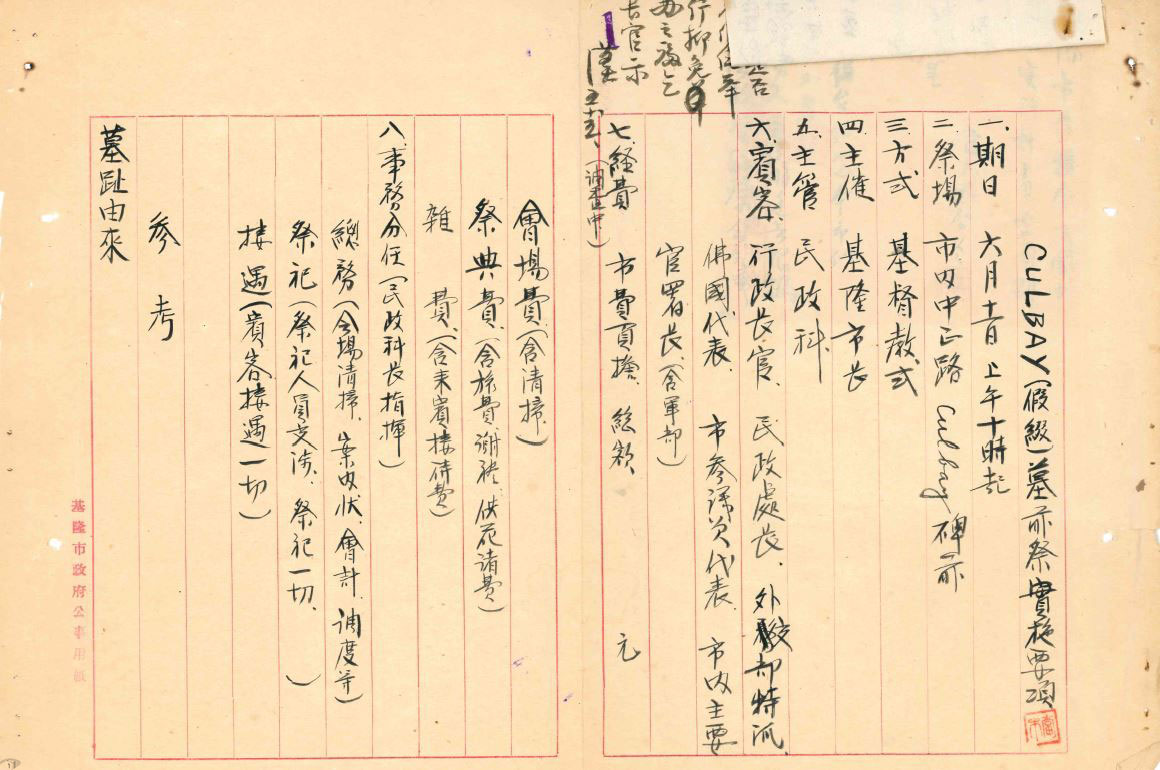 CULBAY(假綴)墓前祭實施要項
一、期日 六月十一日 上午十時起
二 祭場 市内中正路 Culbay 碑前
三 方式 基督教式
四 主催 基隆市長
五 主管 民政科
六、賓客 行政長官 民政處長 外交部特派
佛國代表 市參議員代表 市内主要
官署長(含軍部)
七、経費 市費負擔 総額 元
(調查中)
會場費(含清掃)
祭典費(含旅費、謝礼、供花諸費)
雜 費(含来賓接待費)
八、事務分任(民政科長指揮)
總務(会場清掃、案内状、會計、調度等)
祭祀(祭祀人員交涉、祭祀一切、)
接遇(賓客接遇一切)
參 考
墓趾由來
是否
行抑免
長官示
基隆市政府公事用紙